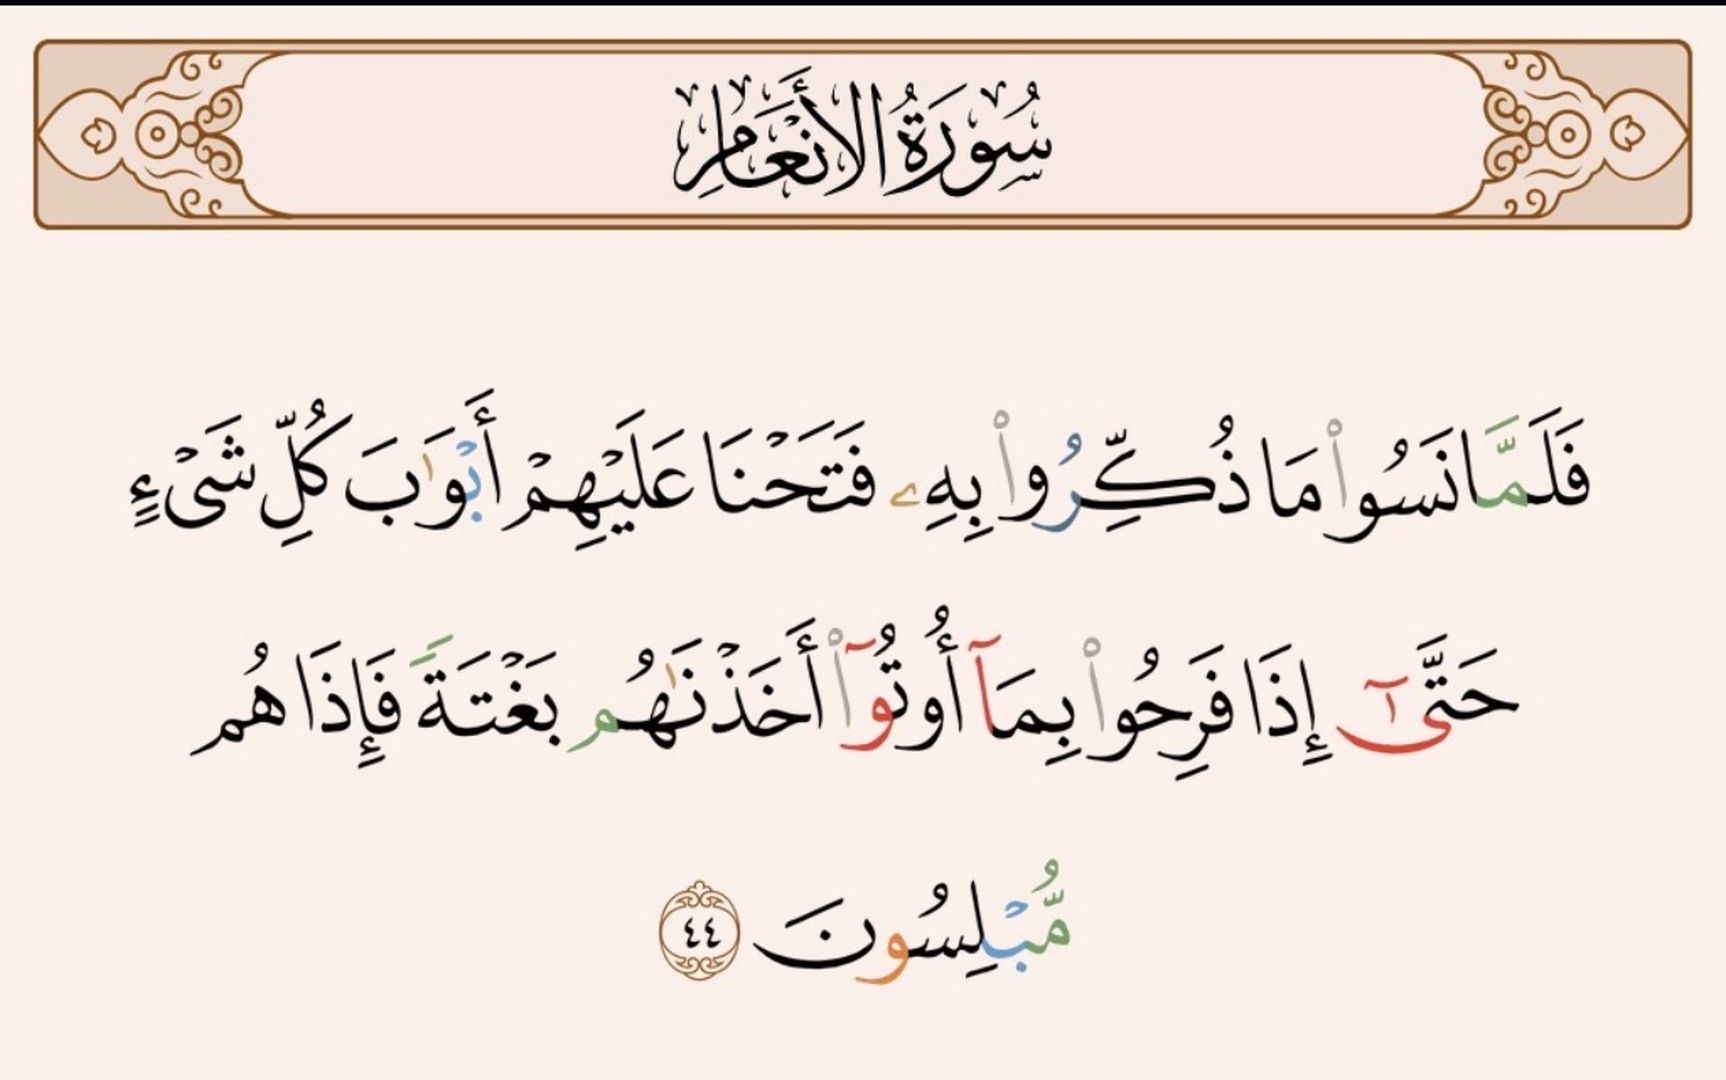 سُورَةُ الأَنْعَامِ
فَلَمَّا نَسُوا۟ مَا ذُكِّرُوا۟ بِهِۦ فَتَحْنَا عَلَيْهِمْ أَبْوَٰبَ كُلِّ شَىْءٍ
حَتَّىٰٓ إِذَا فَرِحُوا۟ بِمَآ أُوتُوٓا۟ أَخَذْنَٰهُم بَغْتَةً فَإِذَا هُم
مُّبْلِسُونَ ٤٤